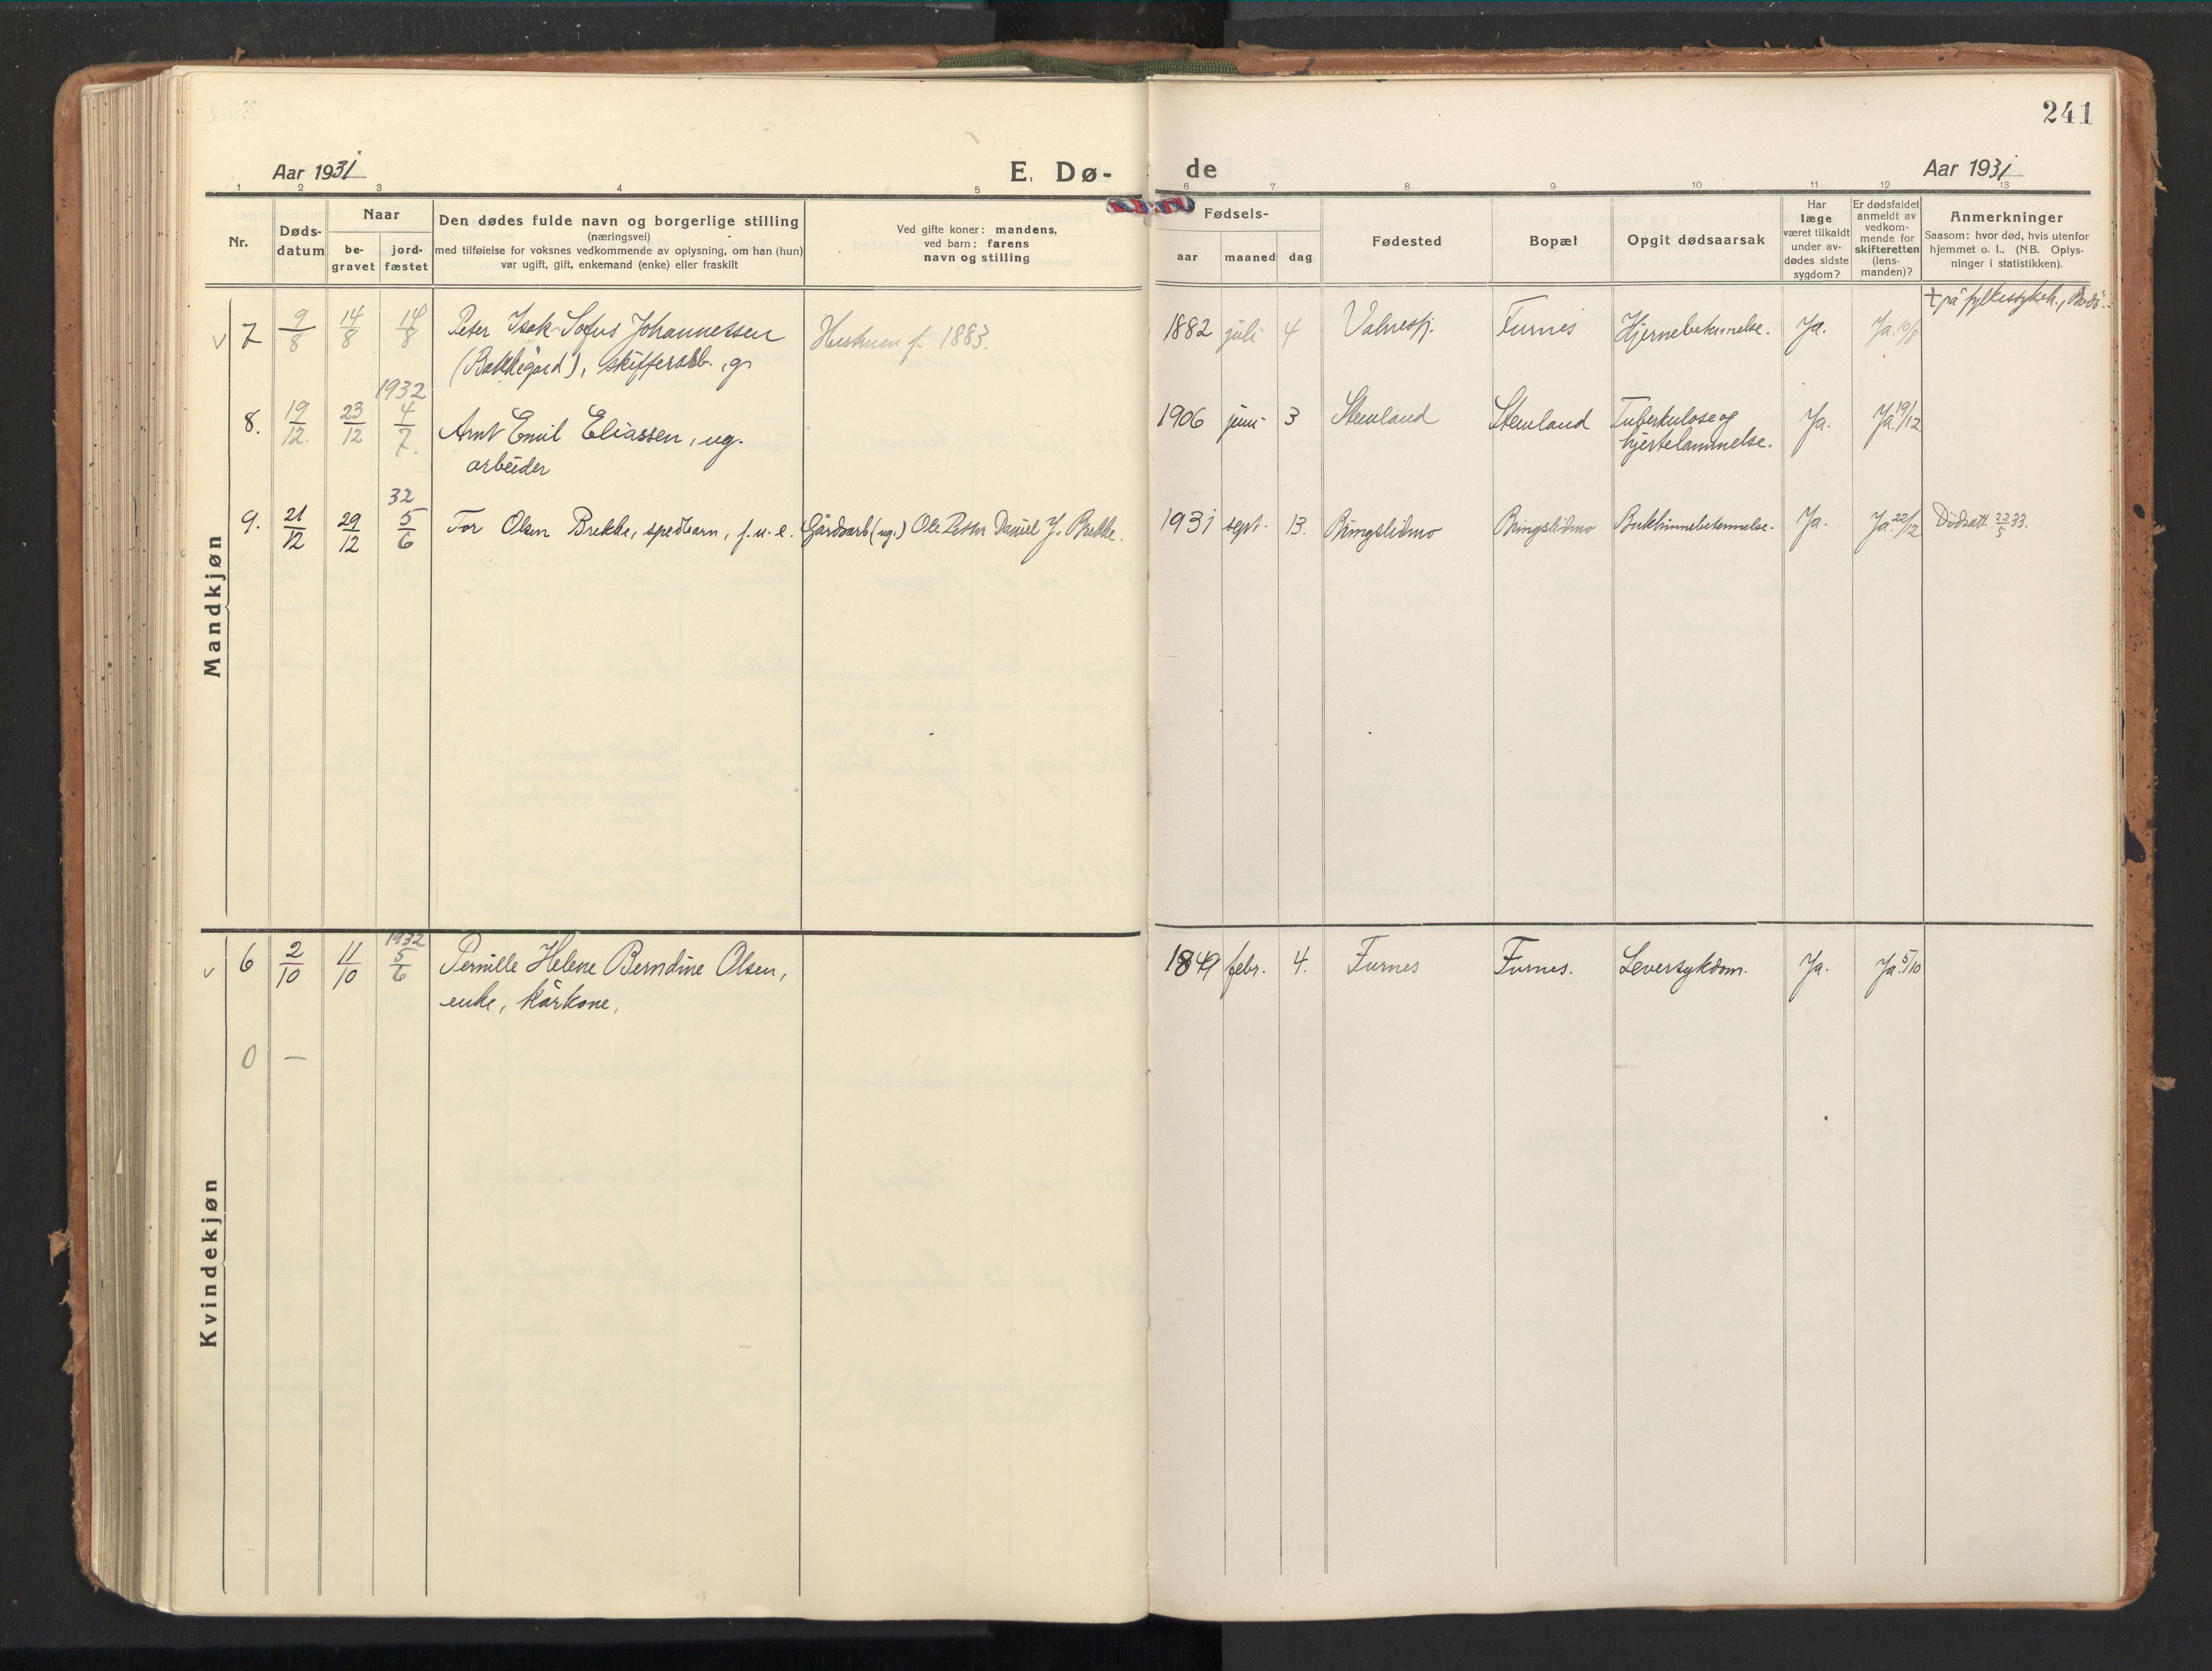 241
Aar 1931 E. Dø- de Aar 1931
1 2 3 4 5 6 7 8 9 10 11 12 13
Nr.
Døds-
datum
Naar
be-
gravet
jord-
fæstet
Den dødes fulde navn og borgerlige stilling
(næringsvei)
med tilføielse for voksnes vedkommende av oplysning, om han (hun)
var ugift, gift, enkemand (enke) eller fraskilt
Ved gifte koner: mandens,
ved barn: farens
navn og stilling
Fødsels-
aar maaned dag
Fødested
Bopæl
Opgit dødsaarsak
Har
læge
været tilkaldt
under av-
dødes sidste
sygdom?
Er dødsfaldet
anmeldt av
vedkom-
mende for
skifteretten
(lens-
manden)?
Anmerkninger
Saasom: hvor død, hvis utenfor
hjemmet o. l. (NB. Oplys-
ninger i statistikken).
Mandkjøn
† på fylkessykeh., Bodø.
v 7 9/8 14/8 14/8 Peter Isak Sofus Johannessen Hustruen f. 1883. 1882 juli 4 Valnesfj. Furnes Hjernebetennelse. Ja. Ja. 10/8
(Bakkegård), skifferarb., g.
1932
8. 19/12 23/12 4/7 Arnt Emil Eliassen, ug. 1906 juni 3 Stemland Stemland Tuberkulose og Ja. Ja. 19/12
arbeider hjertelammelse.
32
9. 21/12 29/12 5/6 Tor Olsen Brekke, spedbarn, f. u. e. Gårdsarb (ug.) Ole Peter Daniel J. Brekke. 1931 sept. 13. Bringslidmo Bringslidmo Bukhinnebetennelse. Ja. Ja. 22/12 Dødsatt. 22/5 33.
Kvindekjøn
1932
v 6 2/10 11/10 5/6 Pernille Helene Berndine Olsen, 1849 febr. 4. Furnes Furnes. Leversykdom. Ja. Ja. 5/10
enke, kårkone.
0 —